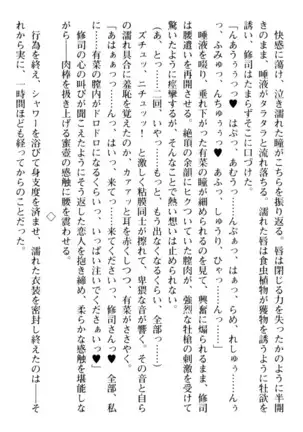 快感に蕩け、泣き濡れた瞳がこちらを振り返る。唇は閉じる力すら失ったように半開
きのまま、唾液がタラタラと流れ落ちる。濡れた唇は食虫植物が獲物を誘うように牡欲を
誘い、修司はたまらずそこに口づけた。
「んあうぅぅっっ♥　はぷっ、あむうっ……んぶぁっ、はぁっ、らめ、れしゅぅ……んう
っ、ふみゅっ、んちゅぅっっ♥　あふっ、しゅうり、ひゃっ……んっ……」
唾液を啜り、垂れ下がった有菜の瞳が細められるのを見て、興奮に煽られるまま、修司
は腰遣いを再開させる。絶頂の余韻にヒクついていた膣肉が、強烈な牡槍の刺激を受けて
驚いたように痙攣するが、そんなことで熱い想いは止められない。
（あ、とっ……二回、いやっ……もっと、もう出なくなるくらい、全部っ……）
ズチュッ、ニチュッッ！　と激しく粘膜同士が擦れて、卑猥な音が響く。その音と自ら
の濡れ具合に羞恥を覚えたのか、カァァッと耳を赤くしつつ、有菜がささやく。
「あはぁぁぁっっ……んっ、はい、来てっ……来てくださいっ、修司さんっ♥　全部、私
に……有菜の膣肉がドロドロになるくらいっ、いっぱい注いでくださぁいっっ♥」
修司の心の叫びが聞こえたようにそう返した恋人を抱き締め、柔らかな感触を堪能しな
がら――肉棒を抜き上げる蜜壺の感触に腰を震わせる。
◇
行為を終え、シャワーを浴びて身支度を済ませ、濡れた衣装を密封し終えたのは――そ
れから実に、一時間ほども経ってからのことだった。